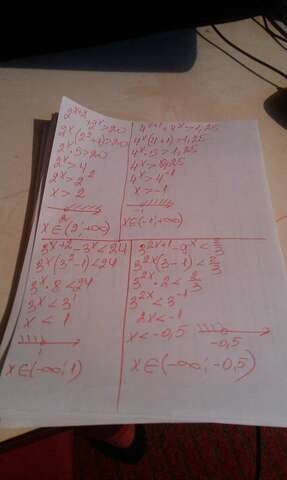 2^{x+2}+2^x>20
2^x(2^2+1)>20
2^x·5>20
2^x>4
2^x>2^2
x>2
2
x∈(2;+∞)
4^{x+1}+4^x>1,25
4^x(4+1)>1,25
4^x·5>1,25
4^x>0,25
4^x>4^{-1}
x>-1
x∈(-1;+∞)
3^{x+2}-3^x<24
3^x(3^2-1)<24
3^x·8<24
3^x<3^1
x<1
1
x∈(-∞;1)
3^{2x+1}-9^x<\frac{2}{3}
3^{2x}(3-1)<\frac{2}{3}
3^{2x}·2<\frac{2}{3}
3^{2x}<3^{-1}
2x<-1
x<-0,5
-0,5
x∈(-∞;-0,5)